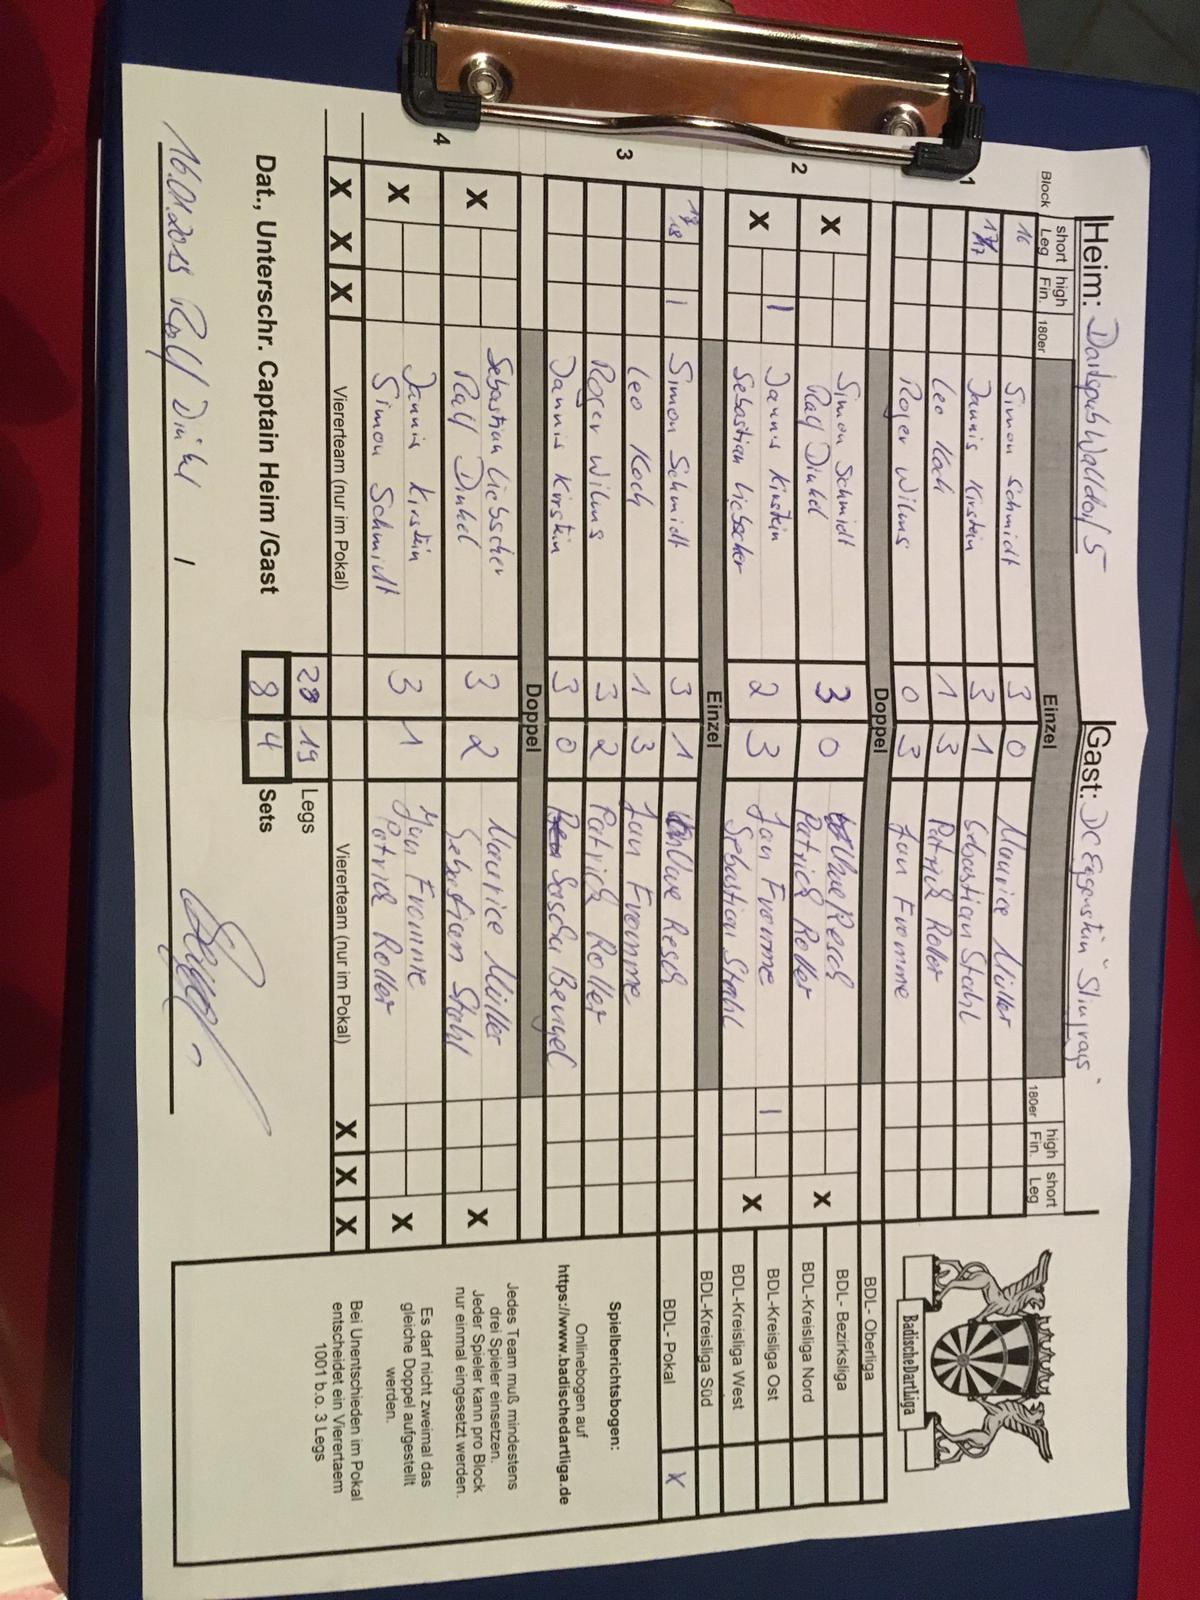 Heim: Dartpub Walldorf 5 Gast: DC Eggenstein "Stingrays"
Block short Leg high Fin. 180er Einzel 180er high Fin. short Leg
1 16 Simon Schmidt 3 0 Maurice Müller
17 Jannis Kirstein 3 1 Sebastian Stahl
Leo Koch 1 3 Patrick Roller
Roger Wilms 0 3 Jan Fromme
Doppel
2 X Simon Schmidt 3 0 Uwe Resch X
Ralf Dinkel Patrick Roller
X 1 Jannis Kirstein 2 3 Jan Fromme 1 X
Sebastian Liebscher Sebastian Stahl
Einzel
3 18 1 Simon Schmidt 3 1 Uwe Resch
Leo Koch 1 3 Jan Fromme
Roger Wilms 3 2 Patrick Roller
Jannis Kirstein 3 0 Sascha Bengel
Doppel
4 X Sebastian Liebscher 3 2 Maurice Müller X
Ralf Dinkel Sebastian Stahl
X Jannis Kirstein 3 1 Jan Fromme X
Simon Schmidt Patrick Roller
X X X Viererteam (nur im Pokal) Viererteam (nur im Pokal) X X X
28 19 Legs
Dat., Unterschr. Captain Heim /Gast 8 4 Sets
Ralf Dinkel /
BadischeDartLiga
BDL- Oberliga
BDL- Bezirksliga
BDL-Kreisliga Nord
BDL-Kreisliga Ost
BDL-Kreisliga West
BDL-Kreisliga Süd
BDL- Pokal X
Spielberichtsbogen:
Onlinebogen auf
https://www.badischedartliga.de
Jedes Team muß mindestens
drei Spieler einsetzen.
Jeder Spieler kann pro Block
nur einmal eingesetzt werden.
Es darf nicht zweimal das
gleiche Doppel aufgestellt
werden.
Bei Unentschieden im Pokal
entscheidet ein Vierertaem
1001 b.o. 3 Legs